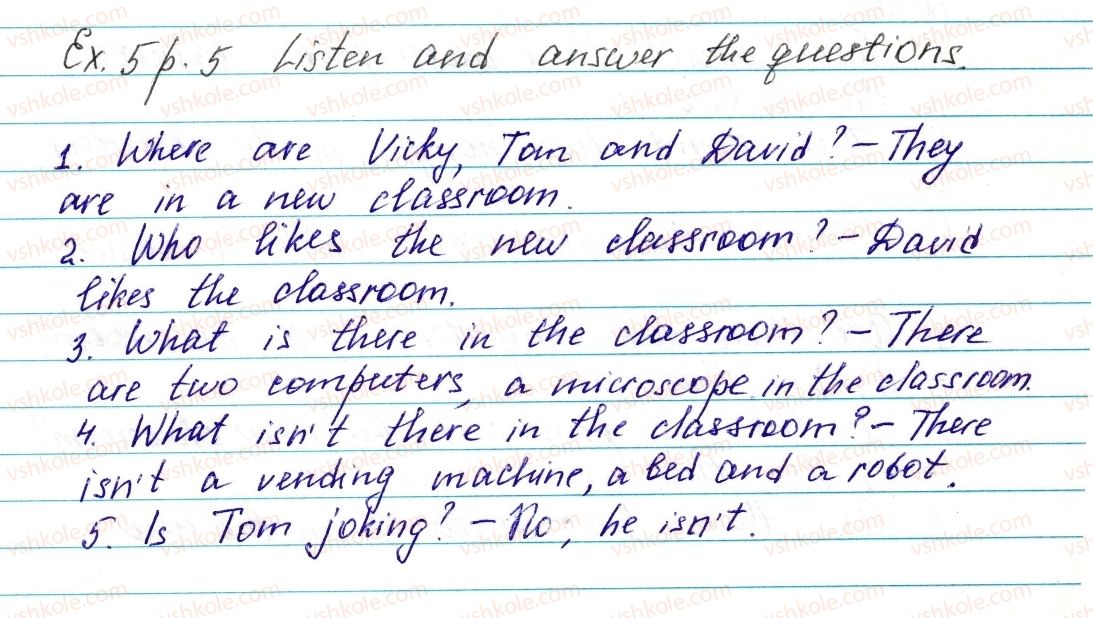 Ex. 5 p. 5 Listen and answer the questions.
1. Where are Vicky, Tom and David? – They
are in a new classroom.
2. Who likes the new classroom? – David
likes the classroom.
3. What is there in the classroom? – There
are two computers, a microscope in the classroom.
4. What isn't there in the classroom? – There
isn't a vending machine, a bed and a robot.
5. Is Tom joking? – No, he isn't.
vshkole.com